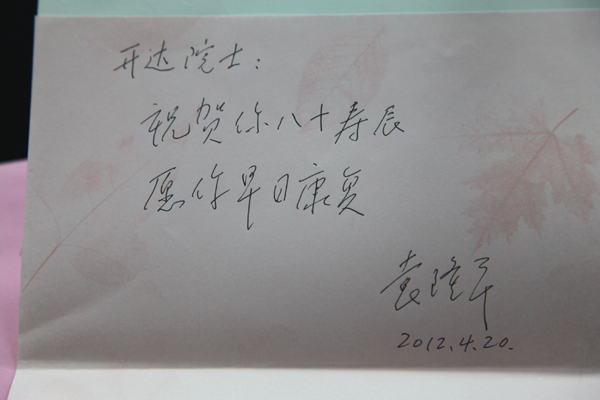 开达院士：
祝贺你八十寿辰
愿你早日康复
袁隆平
2012.4.20.